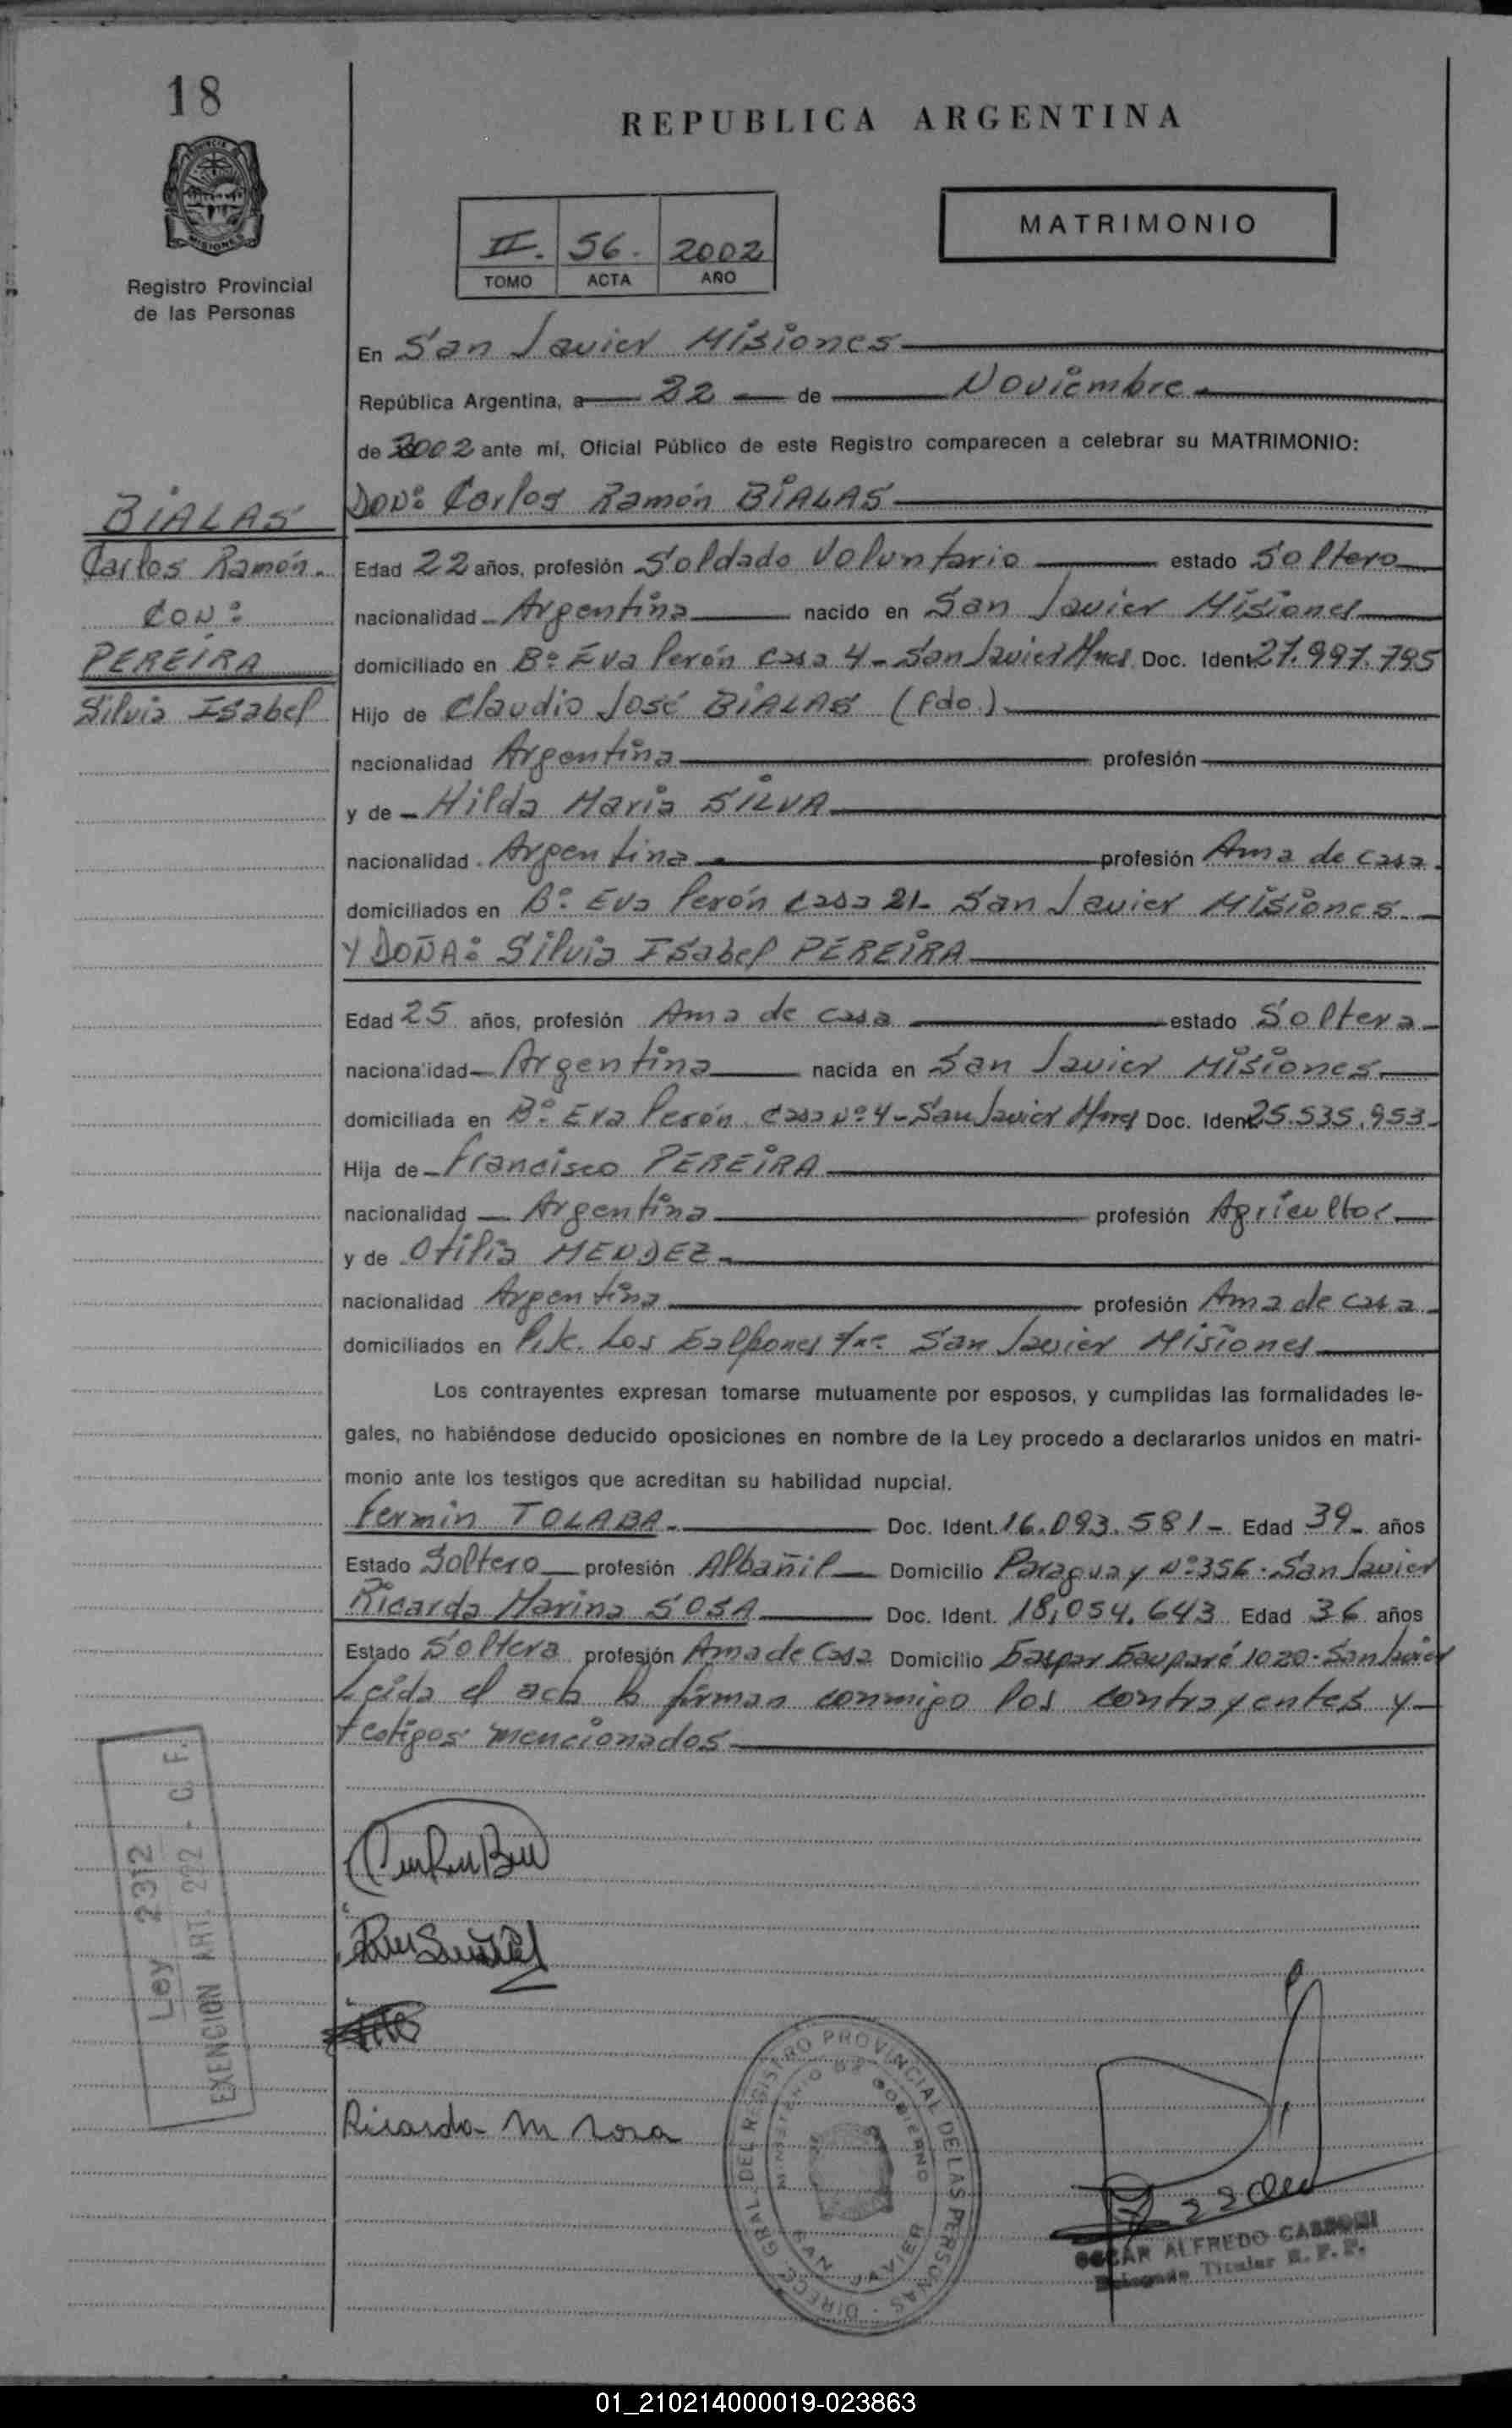 18
REPUBLICA ARGENTINA
MATRIMONIO
II. 56. 2002
TOMO ACTA AÑO
PROVINCIA
MISIONES
Registro Provincial
de las Personas
En San Javier Misiones
República Argentina, a 22 de Noviembre
de 2002 ante mí, Oficial Público de este Registro comparecen a celebrar su MATRIMONIO:
BIALAS
Carlos Ramón.
CON:
PEREIRA
Silvia Isabel
DON: Carlos Ramón BIALAS
Edad 22 años, profesión Soldado Voluntario estado Soltero
nacionalidad Argentina nacido en San Javier Misiones
domiciliado en Bº Eva Perón casa 4 - San Javier Mnes Doc. Ident 27.997.795
Hijo de Claudio José BIALAS (fdo.)
nacionalidad Argentina profesión
y de Hilda Maria SILVA
nacionalidad Argentina profesión Ama de casa
domiciliados en Bº Eva Perón casa 21- San Javier Misiones
Y DOÑA: Silvia Isabel PEREIRA
Edad 25 años, profesión Ama de casa estado Soltera
nacionalidad Argentina nacida en San Javier Misiones
domiciliada en Bº Eva Perón casa Nº 4 - San Javier Mnes Doc. Ident 25.535.953
Hija de Francisco PEREIRA
nacionalidad Argentina profesión Agricultor
y de Otilia MENDEZ
nacionalidad Argentina profesión Ama de casa
domiciliados en Los Galpones San Javier Misiones
Los contrayentes expresan tomarse mutuamente por esposos, y cumplidas las formalidades le-
gales, no habiéndose deducido oposiciones en nombre de la Ley procedo a declararlos unidos en matri-
monio ante los testigos que acreditan su habilidad nupcial.
Fermin TOLABA. Doc. Ident. 16.093.581- Edad 39- años
Estado Soltero profesión Albañil Domicilio Paraguay Nº 356 - San Javier
Ricarda Marina SOSA Doc. Ident. 18,054.643 Edad 36 años
Estado Soltera profesión Ama de Casa Domicilio Gaspar Gauparé 1020 - San Javier
Leida el acta la firman conmigo los contrayentes y
testigos mencionados
Ley 2312
EXENCION ART. 222 - C. F.
Ricarda M Sosa
DIREC. GRAL. DEL REGISTRO PROVINCIAL DE LAS PERSONAS
MINISTERIO DE GOBIERNO
SAN JAVIER
OSCAR ALFREDO
Delegado Titular R. P. P.
01_210214000019-023863